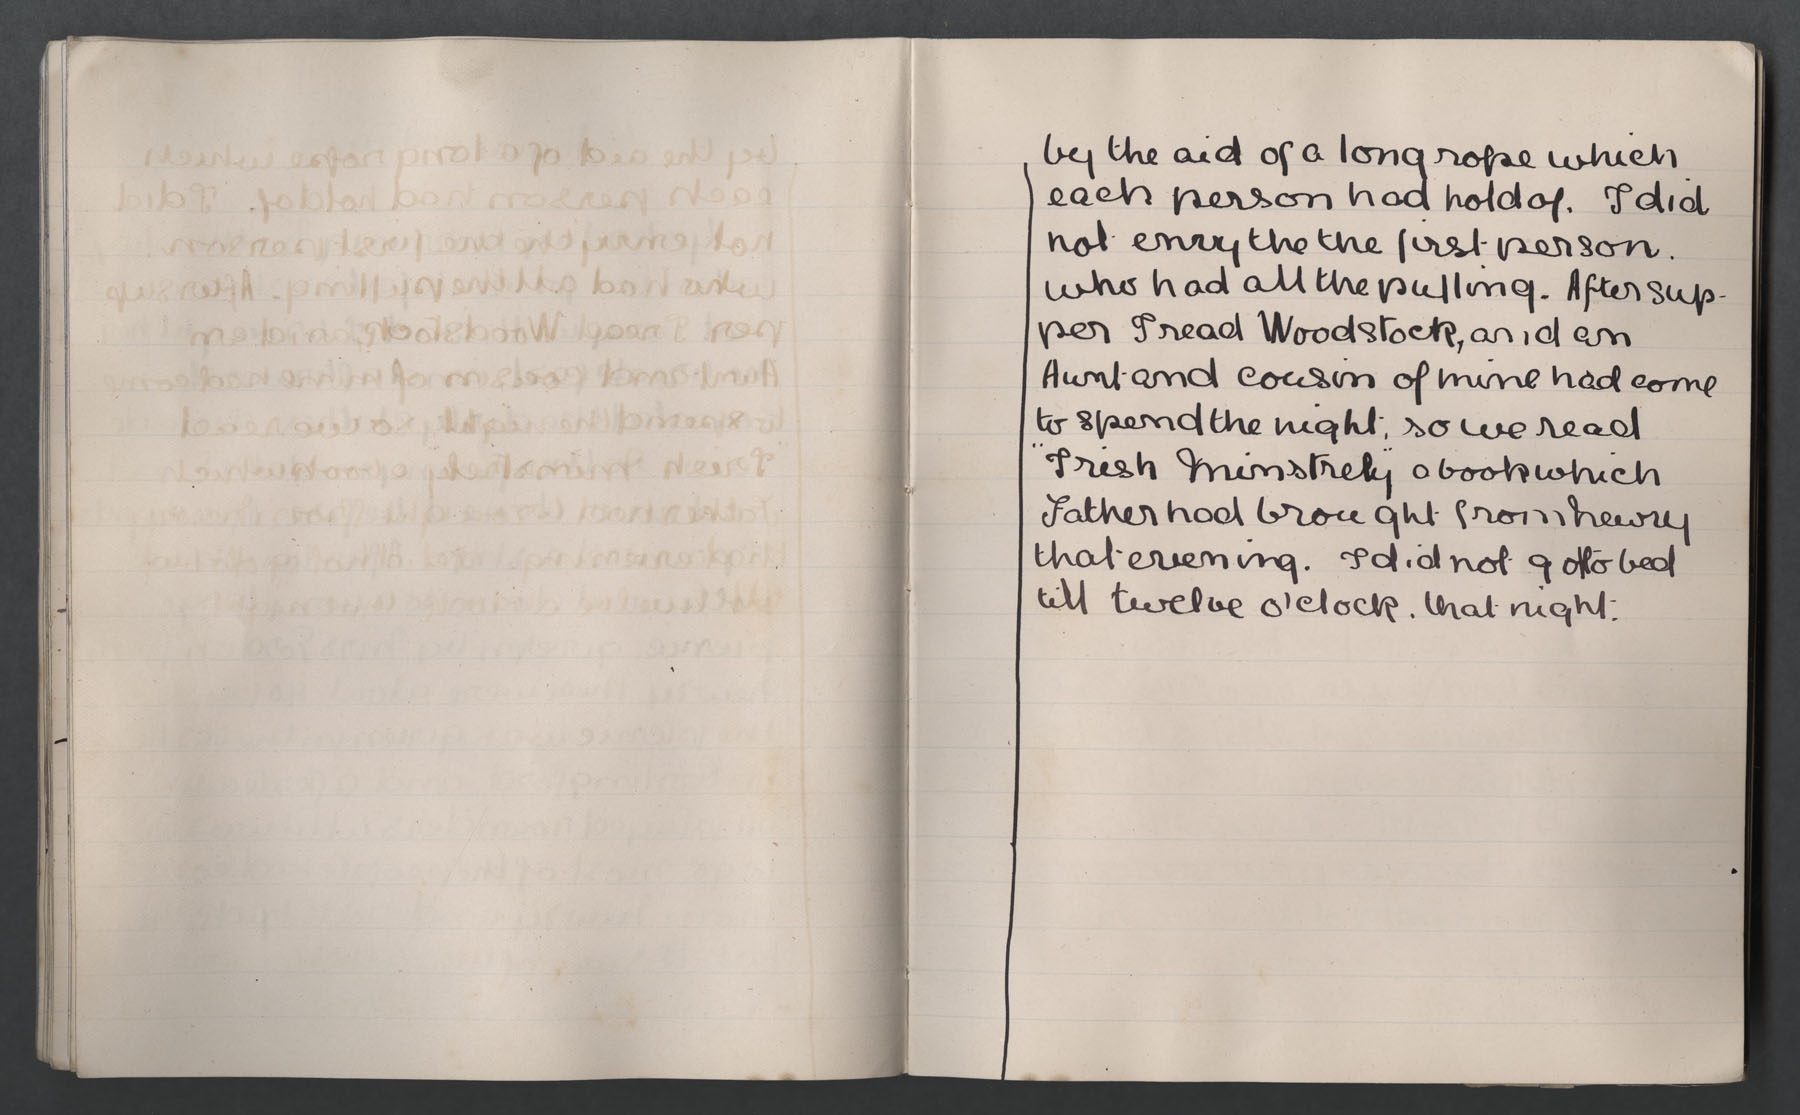 by the aid of a long rope which
each person had hold of. I did
not envy the the first person.
who had all the pulling. After sup-
per I read Woodstock, and an
Aunt and cousin of mine had come
to spend the night, so we read
"Irish Minstrely" a book which
Father had brought from newry
that evening. I did not go to bed
till twelve o'clock. that night.